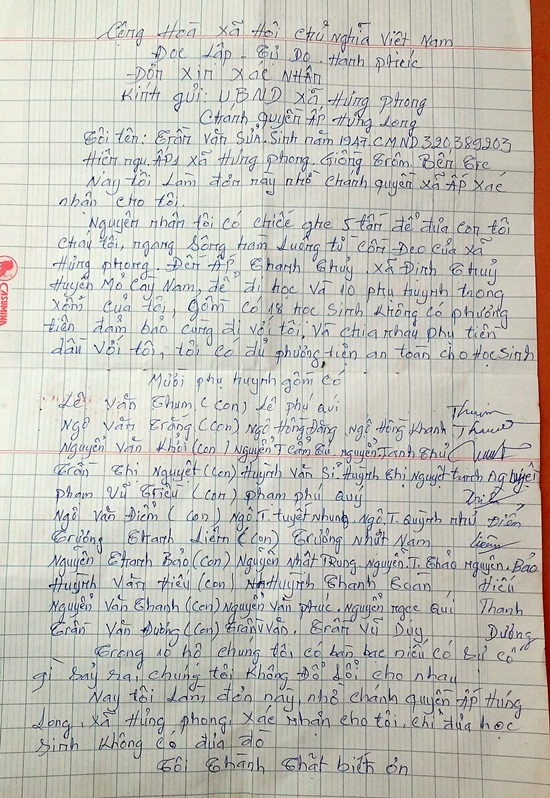 Cộng Hoà Xã Hội Chủ Nghĩa Việt Nam
Đọc Lập - Tự Do - Hạnh phúc
Đơn Xin Xác Nhận
Kính gửi: UBND Xã Hưng phong
Chánh quyền Ấp Hưng Long
Tôi tên: Trần Văn Sửu. Sinh năm 1947. CMND 320389203
Hiện ngụ. ÂP1 Xã Hưng phong. Giồng Trôm Bến Tre
Nay tôi Làm đơn này nhờ chánh quyền Xã Ấp Xác
nhận cho tôi.
Nguyên nhân tôi có chiếc ghe 5 tấn để đưa con tôi
cháu tôi, ngang sông ham Luông từ Cồn - Deo của Xã
Hưng phong. Đến ẤP Thanh Thuỷ, Xã Định Thuỷ
Huyện Mỏ Cày Nam, để đi học và 10 phụ huynh trong
xóm của tôi, gồm có 18 học Sinh Không có phương
tiện đảm bảo cùng đi với tôi, và chia nhau phụ tiền
dầu với tôi, tôi có đủ phương tiện an toàn cho Học Sinh
Mười phụ huynh gồm có
Lê Văn Thum, (con) Lê phú quí Thum
Ngô Văn Trắng (con) Ngô Hồng Đăng Ngô Hồng Khanh
Nguyễn Văn Khởi (con) Nguyễn T Cẩm Tú nguyễn Tanh Thư
Trần Thi Nguyệt (con) Huỳnh Văn Sĩ Huỳnh Thi Nguyệt trinh Nguyệt
phạm Vũ Triều (con) phạm phú Quý
Ngô Văn Điểm (con) Ngô T. tuyết nhung, Ngô. T. Quỳnh như Điểm
Trương Thanh Liêm (con) Trương Nhứt Nam Liêm
Nguyễn Thanh Bảo (con) Nguyễn Nhật Trung nguyễn. T. Thảo nguyên. Bảo
Huỳnh Văn Hiếu (con) Huỳnh Thanh Đoàn Hiếu
Nguyễn Văn Thanh (con) Nguyễn Văn phúc. Nguyễn ngọc Quí Thanh
Trần Văn Dương (con) Trần Văn. Trần Vũ Duy Dương
Trong 10 hộ chung tôi, có bàn bạc niếu có Sự cố
gì Sảy ra, chúng tôi Không Đổ Lổi cho nhau
Nay tôi Làm đơn này, nhờ chánh quyền ẤP Hưng
Long, Xã Hưng phong, Xác nhận cho tôi, chỉ đưa học
Sinh Không có đưa đò
Tôi Thành Thật biết ơn
CASUMINA